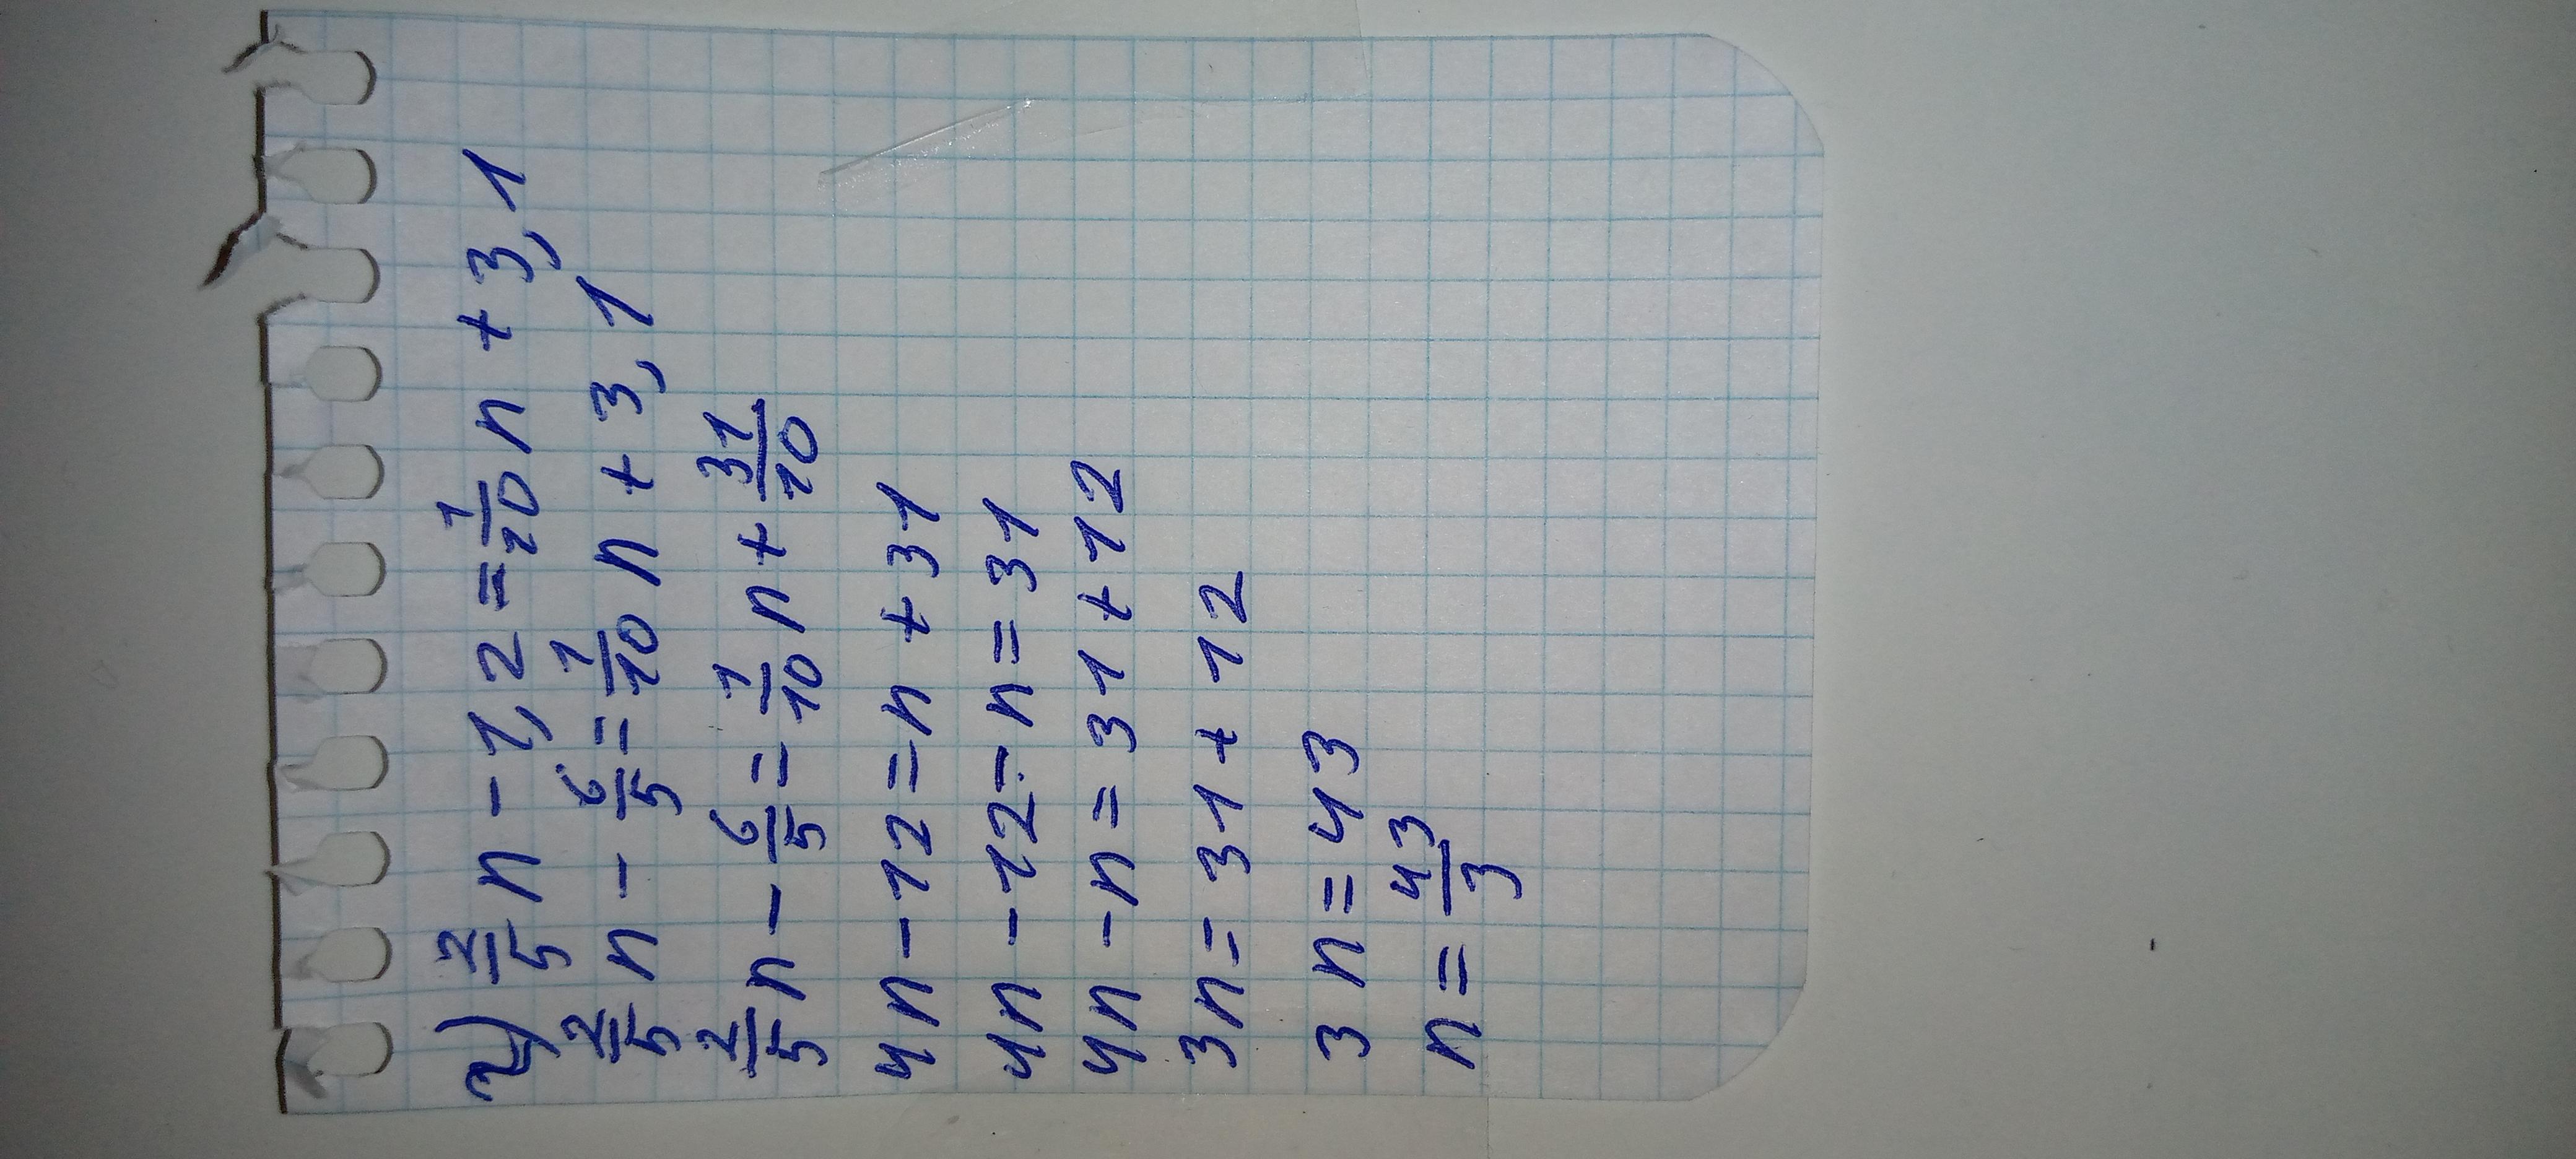 г) 2/5 n - 1,2 = 1/10 n + 3,1
2/5 n - 6/5 = 1/10 n + 3,1
2/5 n - 6/5 = 1/10 n + 31/10
4n - 12 = n + 31
4n - 12 - n = 31
4n - n = 31 + 12
3n = 31 + 12
3n = 43
n = 43/3